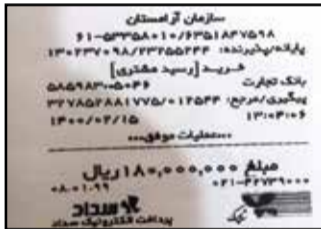 سازمان آرامستان
۶۱-۵۳۳۵۸۰۱۰/۶۳۵۱۸۴۷۵۹۸
پایانه/پذیرنده: ۱۳۰۲۳۷۰۹۸/۲۳۲۵۵۲۴۴
خرید [رسید مشتری]
بانک تجارت ۵۸۵۹۸۳-۵۰۴۶
پیگیری/مرجع: ۳۲۷۸۵۲۸۸۱۷۷۵/۰۱۲۵۴۴
۱۴۰۰/۰۲/۱۵ ۱۳:۰۴:۰۶
عملیات موفق
مبلغ ۱۸۰,۰۰۰,۰۰۰ ریال
۰۸.۰۱.۹۹ ۰۲۱-۴۲۷۳۹۰۰۰
سداد
پرداخت الکترونیک سداد